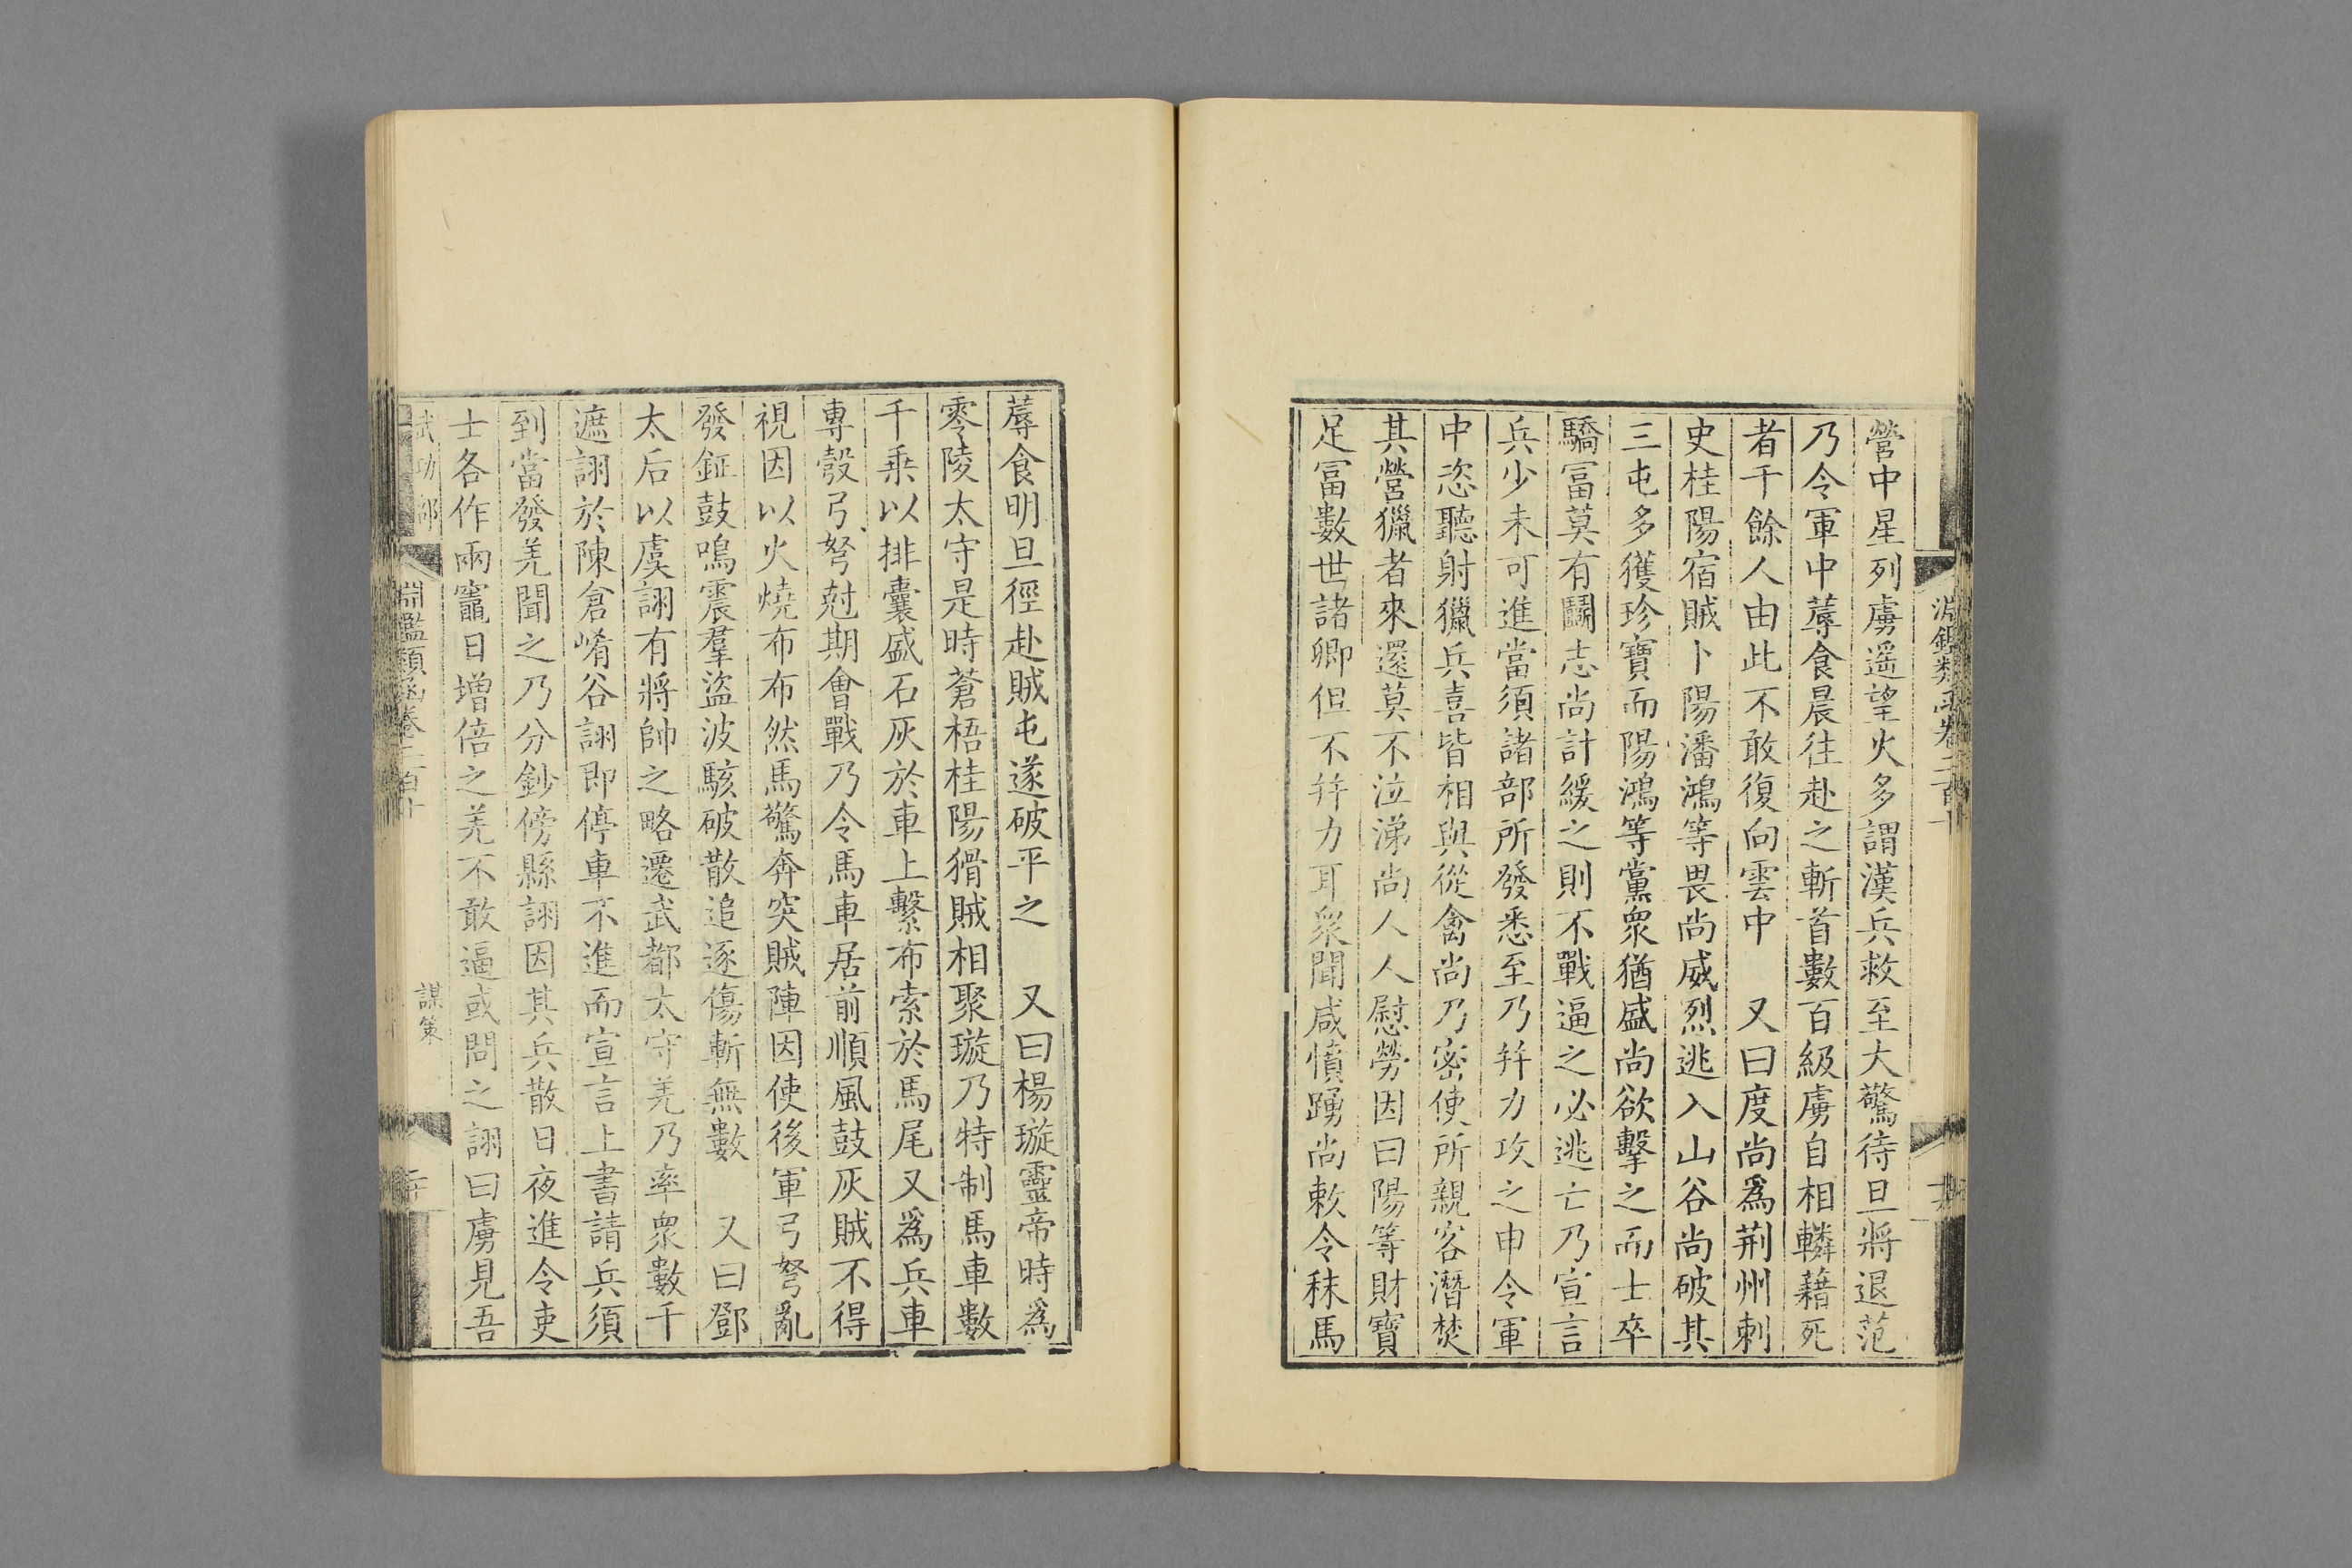 營中星列虜遥望火多謂漢兵救至大驚待旦將退范
乃令軍中蓐食晨往赴之斬首數百級虜自相轔藉死
者千餘人由此不敢復向雲中　又曰度尚爲荆州刺
史桂陽宿賊卜陽潘鴻等畏尚威烈逃入山谷尚破其
三屯多獲珍寶而陽鴻等黨衆猶盛尚欲擊之而士卒
驕冨莫有鬭志尚計緩之則不戰逼之必逃亡乃宣言
兵少未可進當須諸部所發悉至乃并力攻之申令軍
中恣聽射獵兵喜皆相與從禽尚乃密使所親客潛焚
其營獵者來還莫不泣涕尚人人慰勞因曰陽等財寶
足冨數世諸卿但不并力耳衆聞咸憤踴尚敕令秣馬
蓐食明旦徑赴賊屯遂破平之　又曰楊璇靈帝時爲
零陵太守是時蒼梧桂陽猾賊相聚璇乃特制馬車數
千乗以排囊盛石灰於車上繫布索於馬尾又爲兵車
專彀弓弩尅期會戰乃令馬車居前順風鼓灰賊不得
視因以火燒布布然馬驚奔突賊陣因使後軍弓弩亂
發鉦鼓鳴震羣盜波駭破散追逐傷斬無數　又曰鄧
太后以虞詡有將帥之略遷武都太守羌乃率衆數千
遮詡於陳倉崤谷詡即停車不進而宣言上書請兵須
到當發羌聞之乃分鈔傍縣詡因其兵散日夜進令吏
士各作兩竈日增倍之羌不敢逼或問之詡曰虜見吾
武功部
淵鑑類函卷二百十
謀策